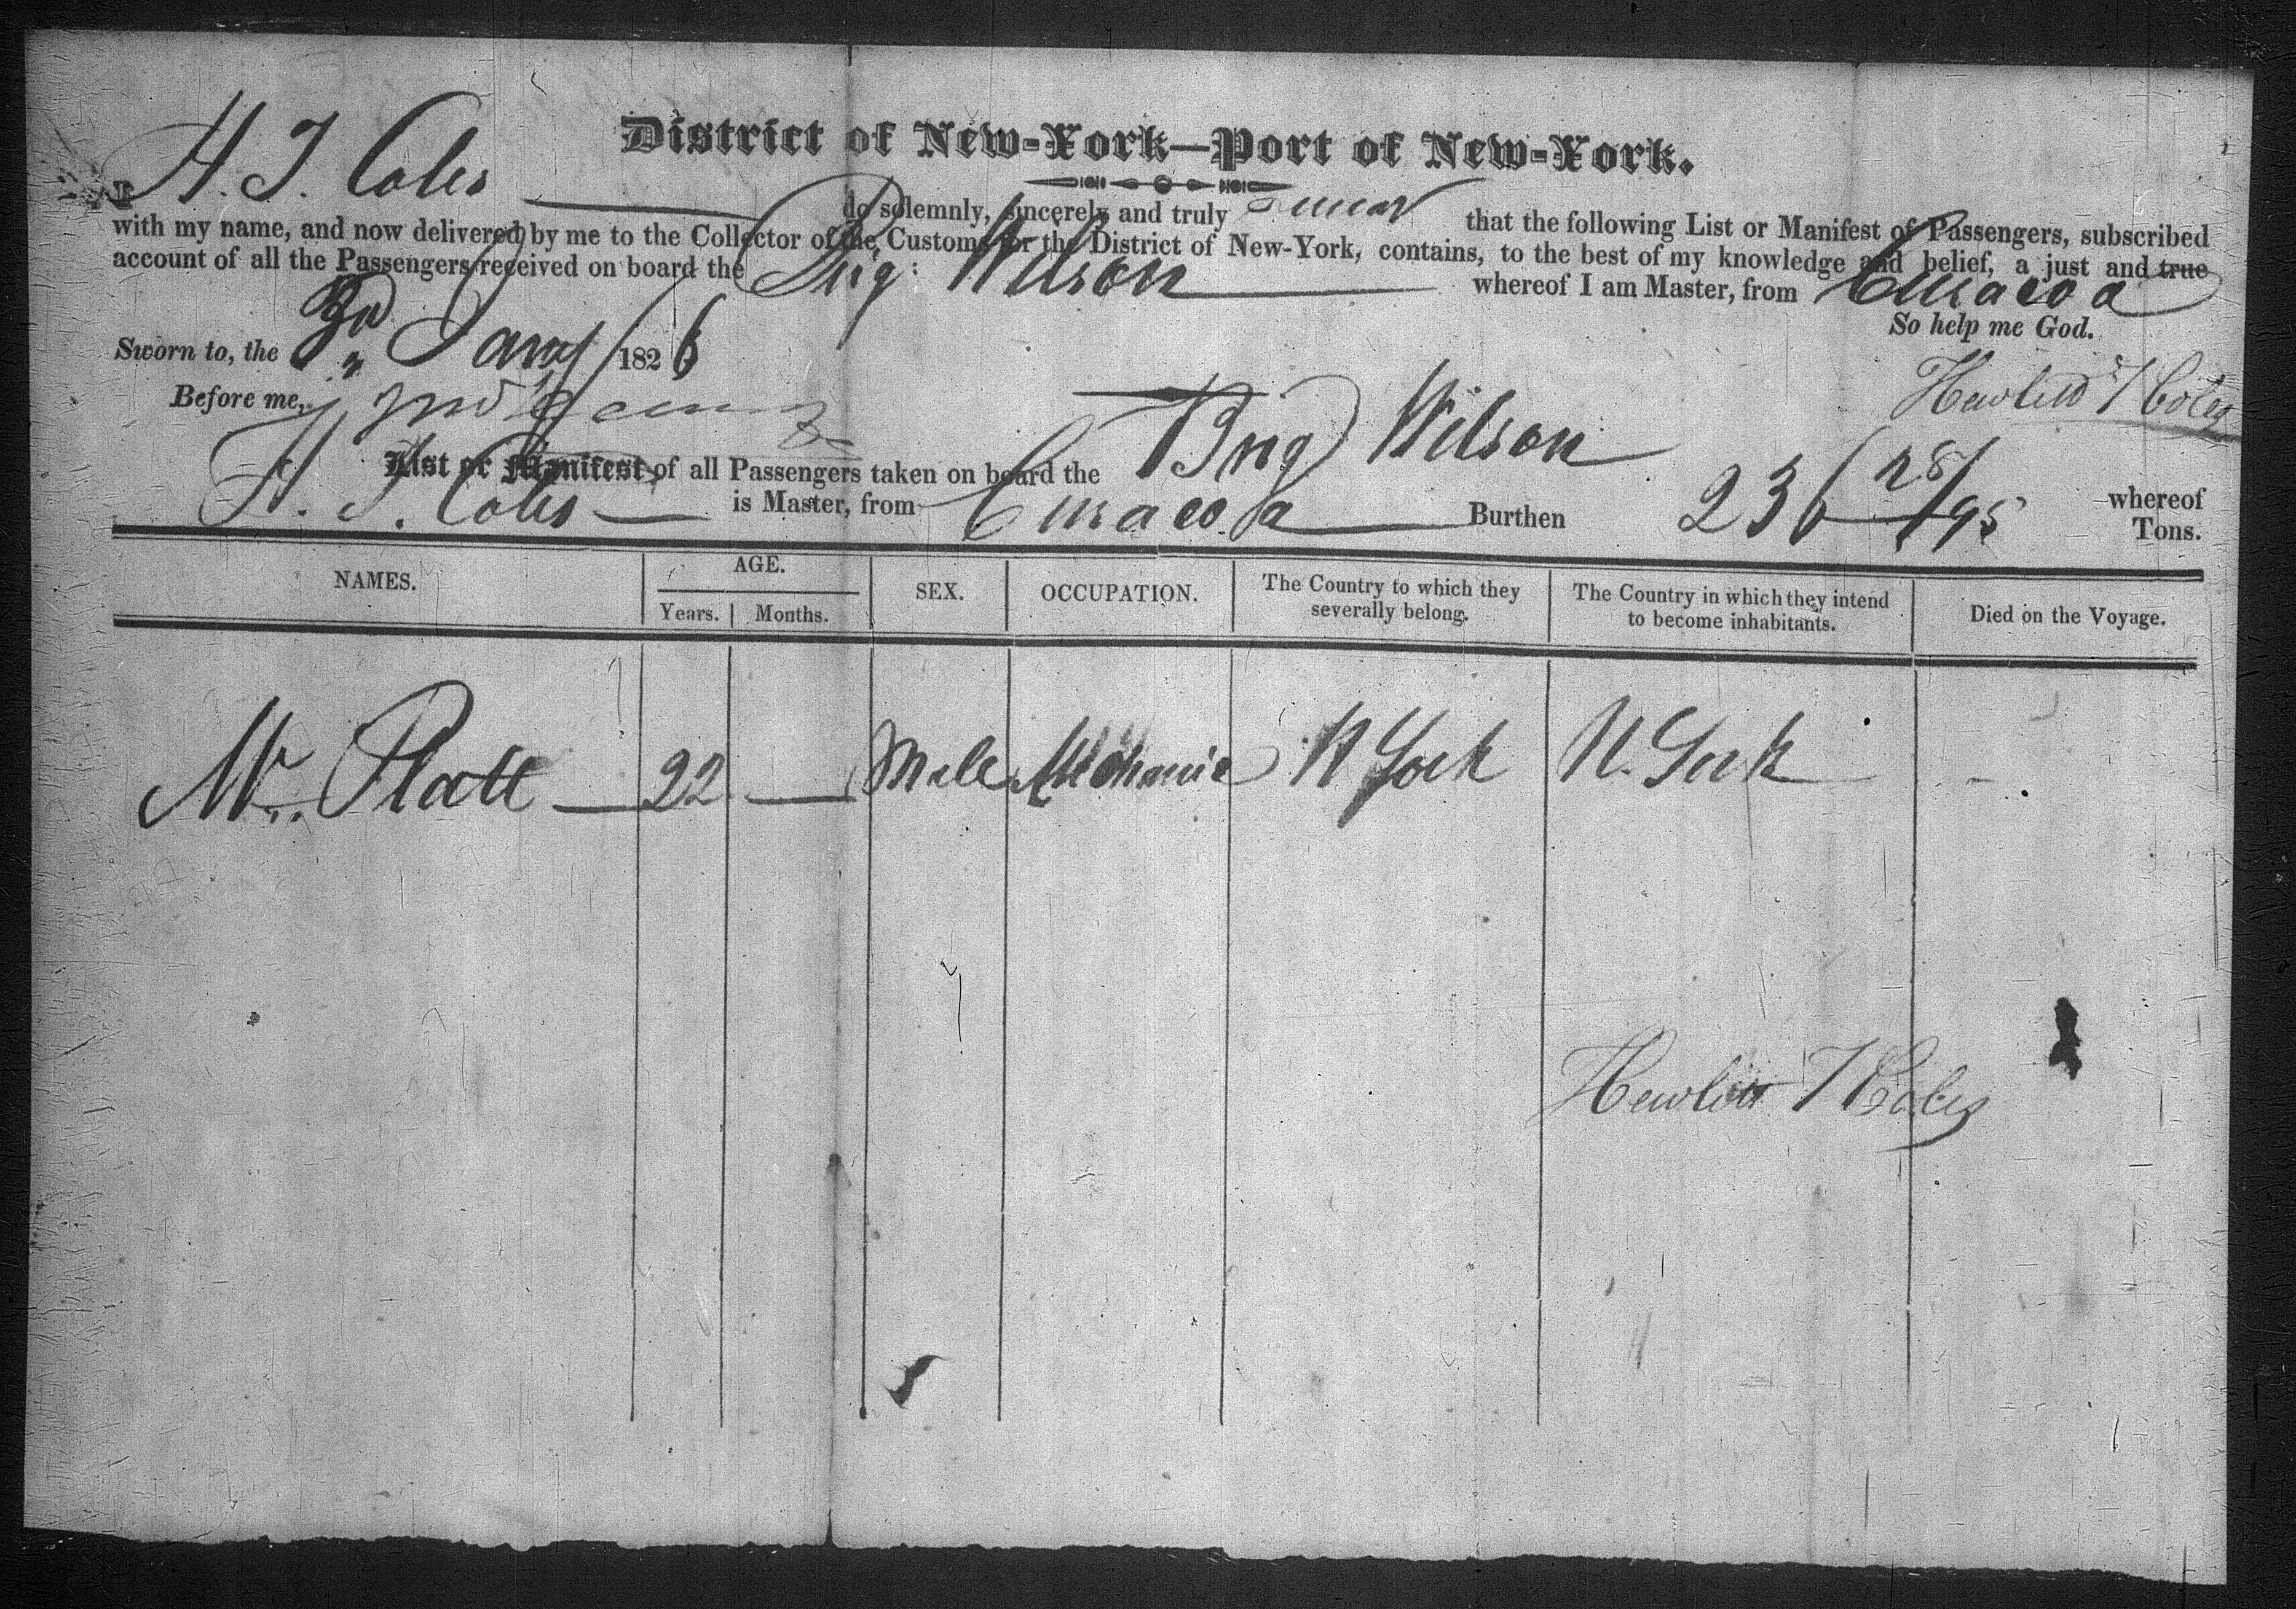 District of New-York—Port of New-York.
I H. T. Coles do solemnly, sincerely and truly swear that the following List or Manifest of Passengers, subscribed
with my name, and now delivered by me to the Collector of the Customs for the District of New-York, contains, to the best of my knowledge and belief, a just and true
account of all the Passengers received on board the Brig: Wilson whereof I am Master, from Curacoa
So help me God.
Sworn to, the 3d Jany 1826
Before me,
Hewlett T Coles
List or Manifest of all Passengers taken on board the Brig Wilson whereof
H. T. Coles is Master, from Curacoa Burthen 236 28/95 Tons.
NAMES. AGE. SEX. OCCUPATION. The Country to which they severally belong. The Country in which they intend to become inhabitants. Died on the Voyage.
Years. Months.
Mr. Platt 22 — Male Mechanic N York N. York -
Hewlett T Coles